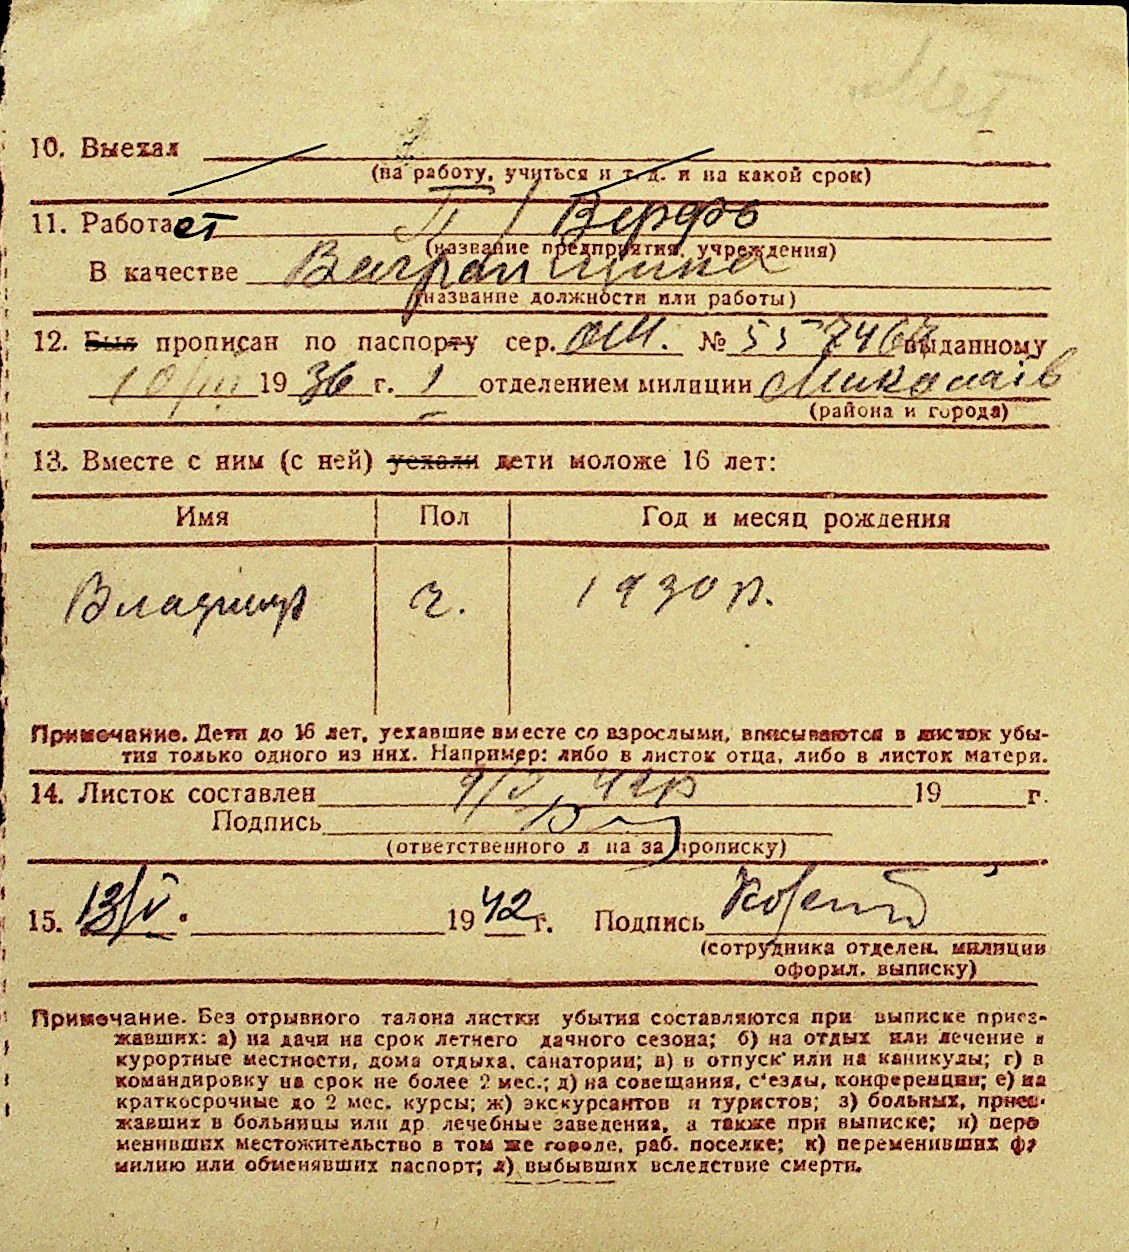 10. Выехал
(на работу, учиться и т. д. и на какой срок)
11. Работает Верфь
(название предприятия, учреждения)
В качестве Ваграпщика
(название должности или работы)
12. Был прописан по паспорту сер. ОМ. № 557467 выданному
10/III 1936 г. 1 отделением милиции Миколаїв
(района и города)
13. Вместе с ним (с ней) уехали дети моложе 16 лет:
Имя Пол Год и месяц рождения
Владимир ч. 1930 р.
Примечание. Дети до 16 лет, уехавшие вместе со взрослыми, вписываются в листок убы-
тия только одного из них. Например: либо в листок отца, либо в листок матери.
14. Листок составлен 9/V 42 р 19 г.
Подпись
(ответственного л на за прописку)
15. 13/V. 1942 г. Подпись
(сотрудника отделен. милиции
оформл. выписку)
Примечание. Без отрывного талона листки убытия составляются при выписке приез-
жавших: а) на дачи на срок летнего дачного сезона; б) на отдых или лечение в
курортные местности, дома отдыха, санатории; в) в отпуск или на каникулы; г) в
командировку на срок не более 2 мес.; д) на совещания, с'езды, конференции; е) на
краткосрочные до 2 мес. курсы; ж) экскурсантов и туристов; з) больных, приез-
жавших в больницы или др лечебные заведения, а также при выписке; и) пере
менивших местожительство в том же городе, раб. поселке; к) переменивших фа
милию или обменявших паспорт; л) выбывших вследствие смерти.